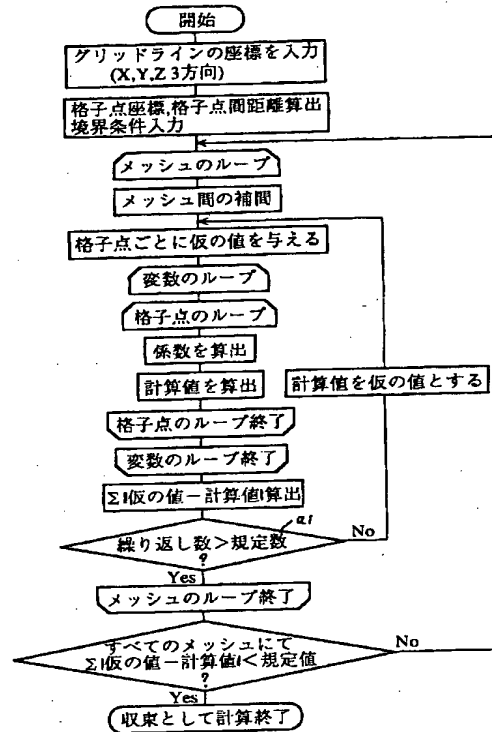 開始
グリッドラインの座標を入力
(X,Y,Z 3方向)
格子点座標,格子点間距離算出
境界条件入力
メッシュのループ
メッシュ間の補間
格子点ごとに仮の値を与える
変数のループ
格子点のループ
係数を算出
計算値を算出
計算値を仮の値とする
格子点のループ終了
変数のループ終了
Σ|仮の値-計算値|算出
a1
繰り返し数>規定数
?
No
Yes
メッシュのループ終了
すべてのメッシュにて
Σ|仮の値-計算値|<規定値
?
No
Yes
収束として計算終了